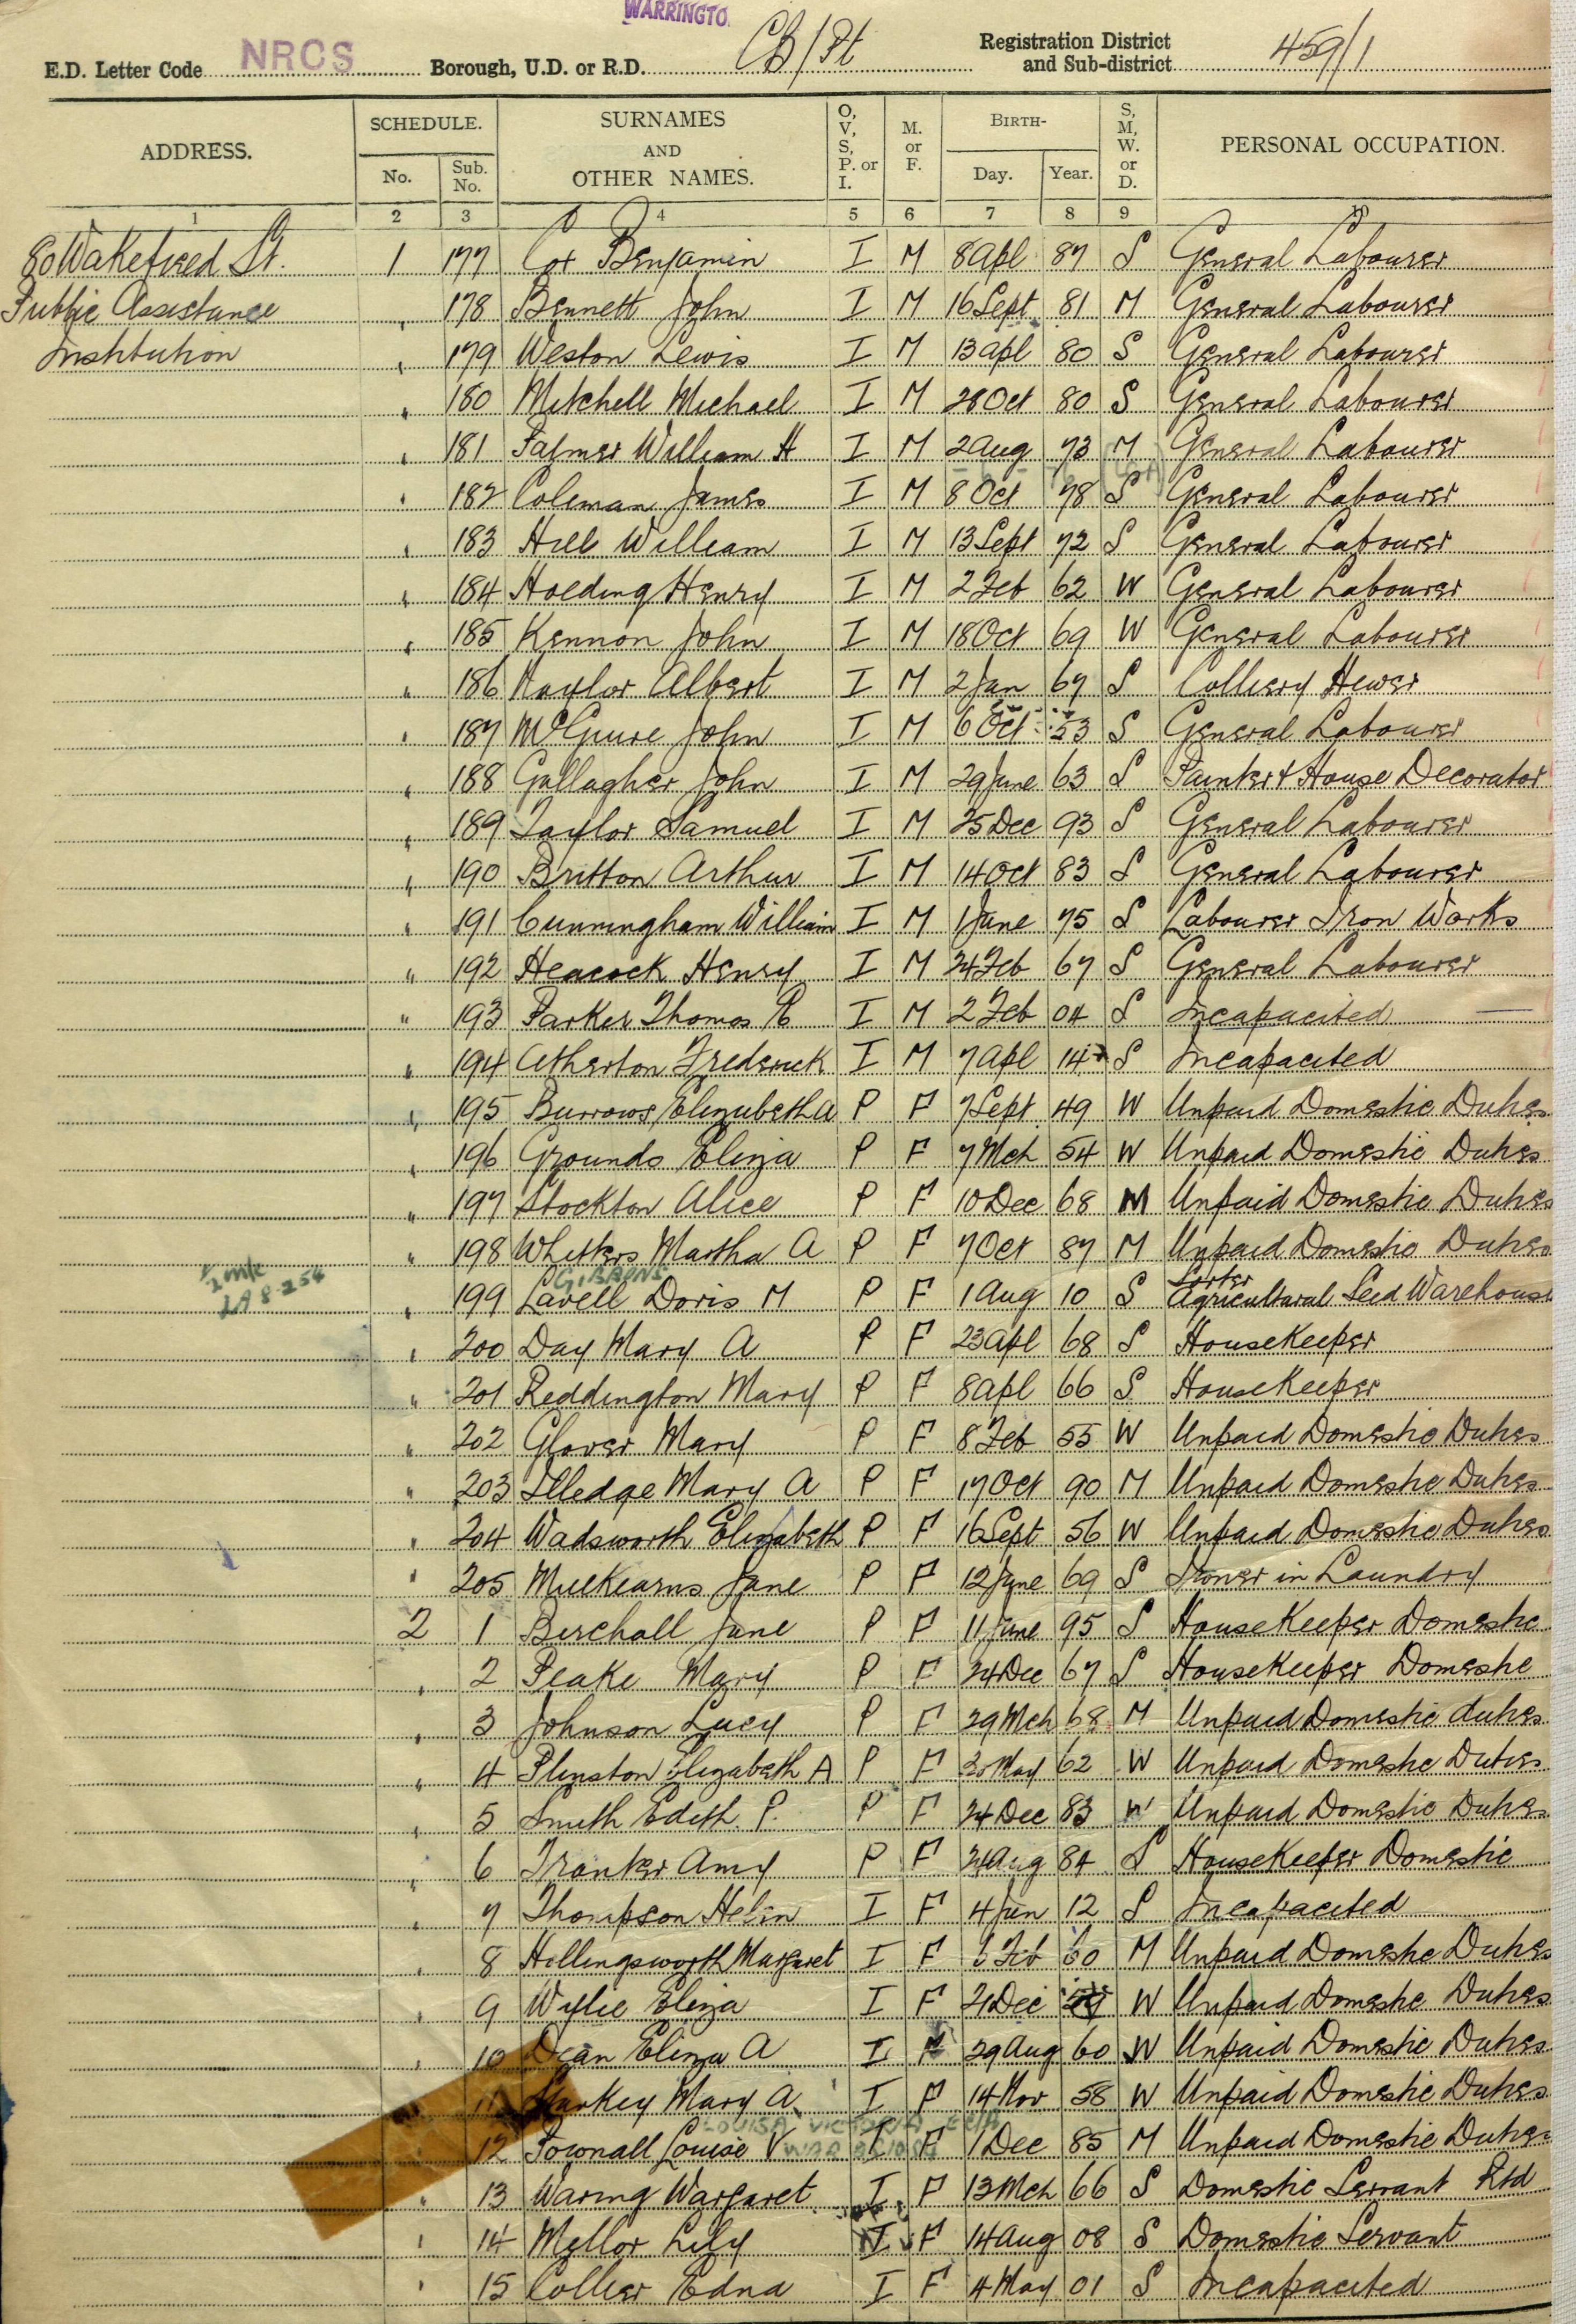 WARRINGTO
E.D. Letter Code NRCS Borough, U.D. or R.D. CB/Pt Registration District and Sub-district 459/1
ADDRESS. SCHEDULE. No. Sub. No. SURNAMES AND OTHER NAMES. O, V, S, P. or I. M. or F. BIRTH- Day. Year. S, M, W. or D. PERSONAL OCCUPATION.
1 2 3 4 5 6 7 8 9 10
80 Wakefield St. 1 177 Cox Benjamin I M 8 Apl 87 S General Labourer
Public Assistance " 178 Bennett John I M 16 Sept 81 M General Labourer
Institution " 179 Weston Lewis I M 13 Apl 80 S General Labourer
" 180 Mitchell Michael I M 28 Oct 80 S General Labourer
" 181 Palmer William H I M 2 Aug 73 M General Labourer
" 182 Coleman James I M 8 Oct 78 S General Labourer
" 183 Hill William I M 13 Sept 72 S General Labourer
" 184 Holding Henry I M 2 Feb 62 W General Labourer
" 185 Kennon John I M 18 Oct 69 W General Labourer
" 186 Naylor Albert I M 2 Jan 67 S Colliery Hewer
" 187 McGuire John I M 6 Oct 53 S General Labourer
" 188 Gallagher John I M 29 June 63 S Painter & House Decorator
" 189 Taylor Samuel I M 25 Dec 93 S General Labourer
" 190 Britton Arthur I M 14 Oct 83 S General Labourer
" 191 Cunningham William I M 1 June 75 S Labourer Iron Works
" 192 Heacock Henry I M 24 Feb 67 S General Labourer
" 193 Parker Thomas R I M 2 Feb 04 S Incapacited
" 194 Atherton Frederick I M 7 Apl 14 S Incapacited
" 195 Burrows Elizabeth A P F 7 Sept 49 W Unpaid Domestic Duties
" 196 Grounds Eliza P F 7 Mch 54 W Unpaid Domestic Duties
" 197 Stockton Alice P F 10 Dec 68 M Unpaid Domestic Duties
" 198 Whitters Martha A P F 7 Oct 87 M Unpaid Domestic Duties
GIBBONS Sorter
" 199 Lavell Doris M P F 1 Aug 10 S Agricultural Seed Warehouse
" 200 Day Mary A P F 23 Apl 68 S Housekeeper
" 201 Reddington Mary P F 8 Apl 66 S Housekeeper
" 202 Glover Mary P F 8 Feb 55 W Unpaid Domestic Duties
" 203 Illedge Mary A P F 17 Oct 90 M Unpaid Domestic Duties
" 204 Wadsworth Elizabeth P F 16 Sept 56 W Unpaid Domestic Duties
" 205 Mulkearns Jane P F 12 June 69 S Ironer in Laundry
2 1 Birchall Jane P F 11 June 95 S Housekeeper Domestic
" 2 Peake Mary P F 24 Dec 67 S Housekeeper Domestic
" 3 Johnson Lucy P F 29 Mch 68 M Unpaid Domestic duties
" 4 Plinston Elizabeth A P F 30 May 62 W Unpaid Domestic Duties
" 5 Smith Edith P. P F 24 Dec 83 W Unpaid Domestic Duties
" 6 Tranter Amy P F 24 Aug 84 S Housekeeper Domestic
" 7 Thompson Helen I F 4 Jun 12 S Incapacited
" 8 Hollingsworth Margaret I F 6 Feb 60 M Unpaid Domestic Duties
" 9 Wylie Eliza I F 21 Dec W Unpaid Domestic Duties
" 10 Dean Eliza A I F 29 Aug 60 W Unpaid Domestic Duties
11 Mary A I F 14 Nov 58 W Unpaid Domestic Duties
LOUISA VICTORIA
" 12 Townall Louise V I F 1 Dec 85 M Unpaid Domestic Duties
" 13 Waring Wargaret I F 13 Mch 66 S Domestic Servant Rtd
" 14 Mellor Lily I F 14 Aug 08 S Domestic Servant
" 15 Collier Edna I F 4 May 01 S Incapacited